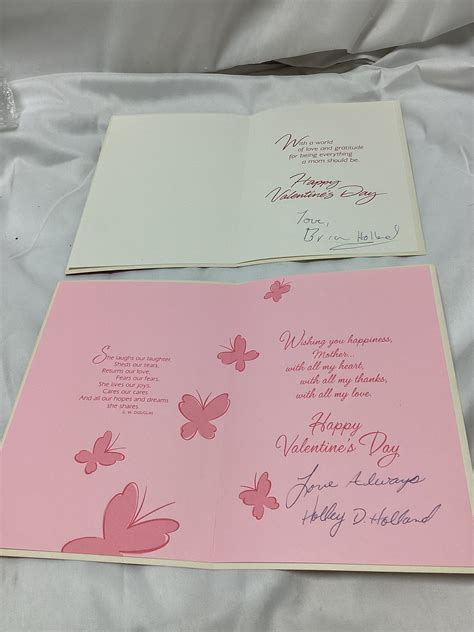 With a world
of love and gratitude
for being everything
a mom should be.
Happy
Valentine's Day
Love,
Brian Holland
She laughs our laughter,
Sheds our tears,
Returns our love,
Fears our fears.
She lives our joys,
Cares our cares
And all our hopes and dreams
she shares.
Wishing you happiness,
Mother...
with all my heart,
with all my thanks,
with all my love.
Happy
Valentine's Day
Love Always
Holley D. Holland